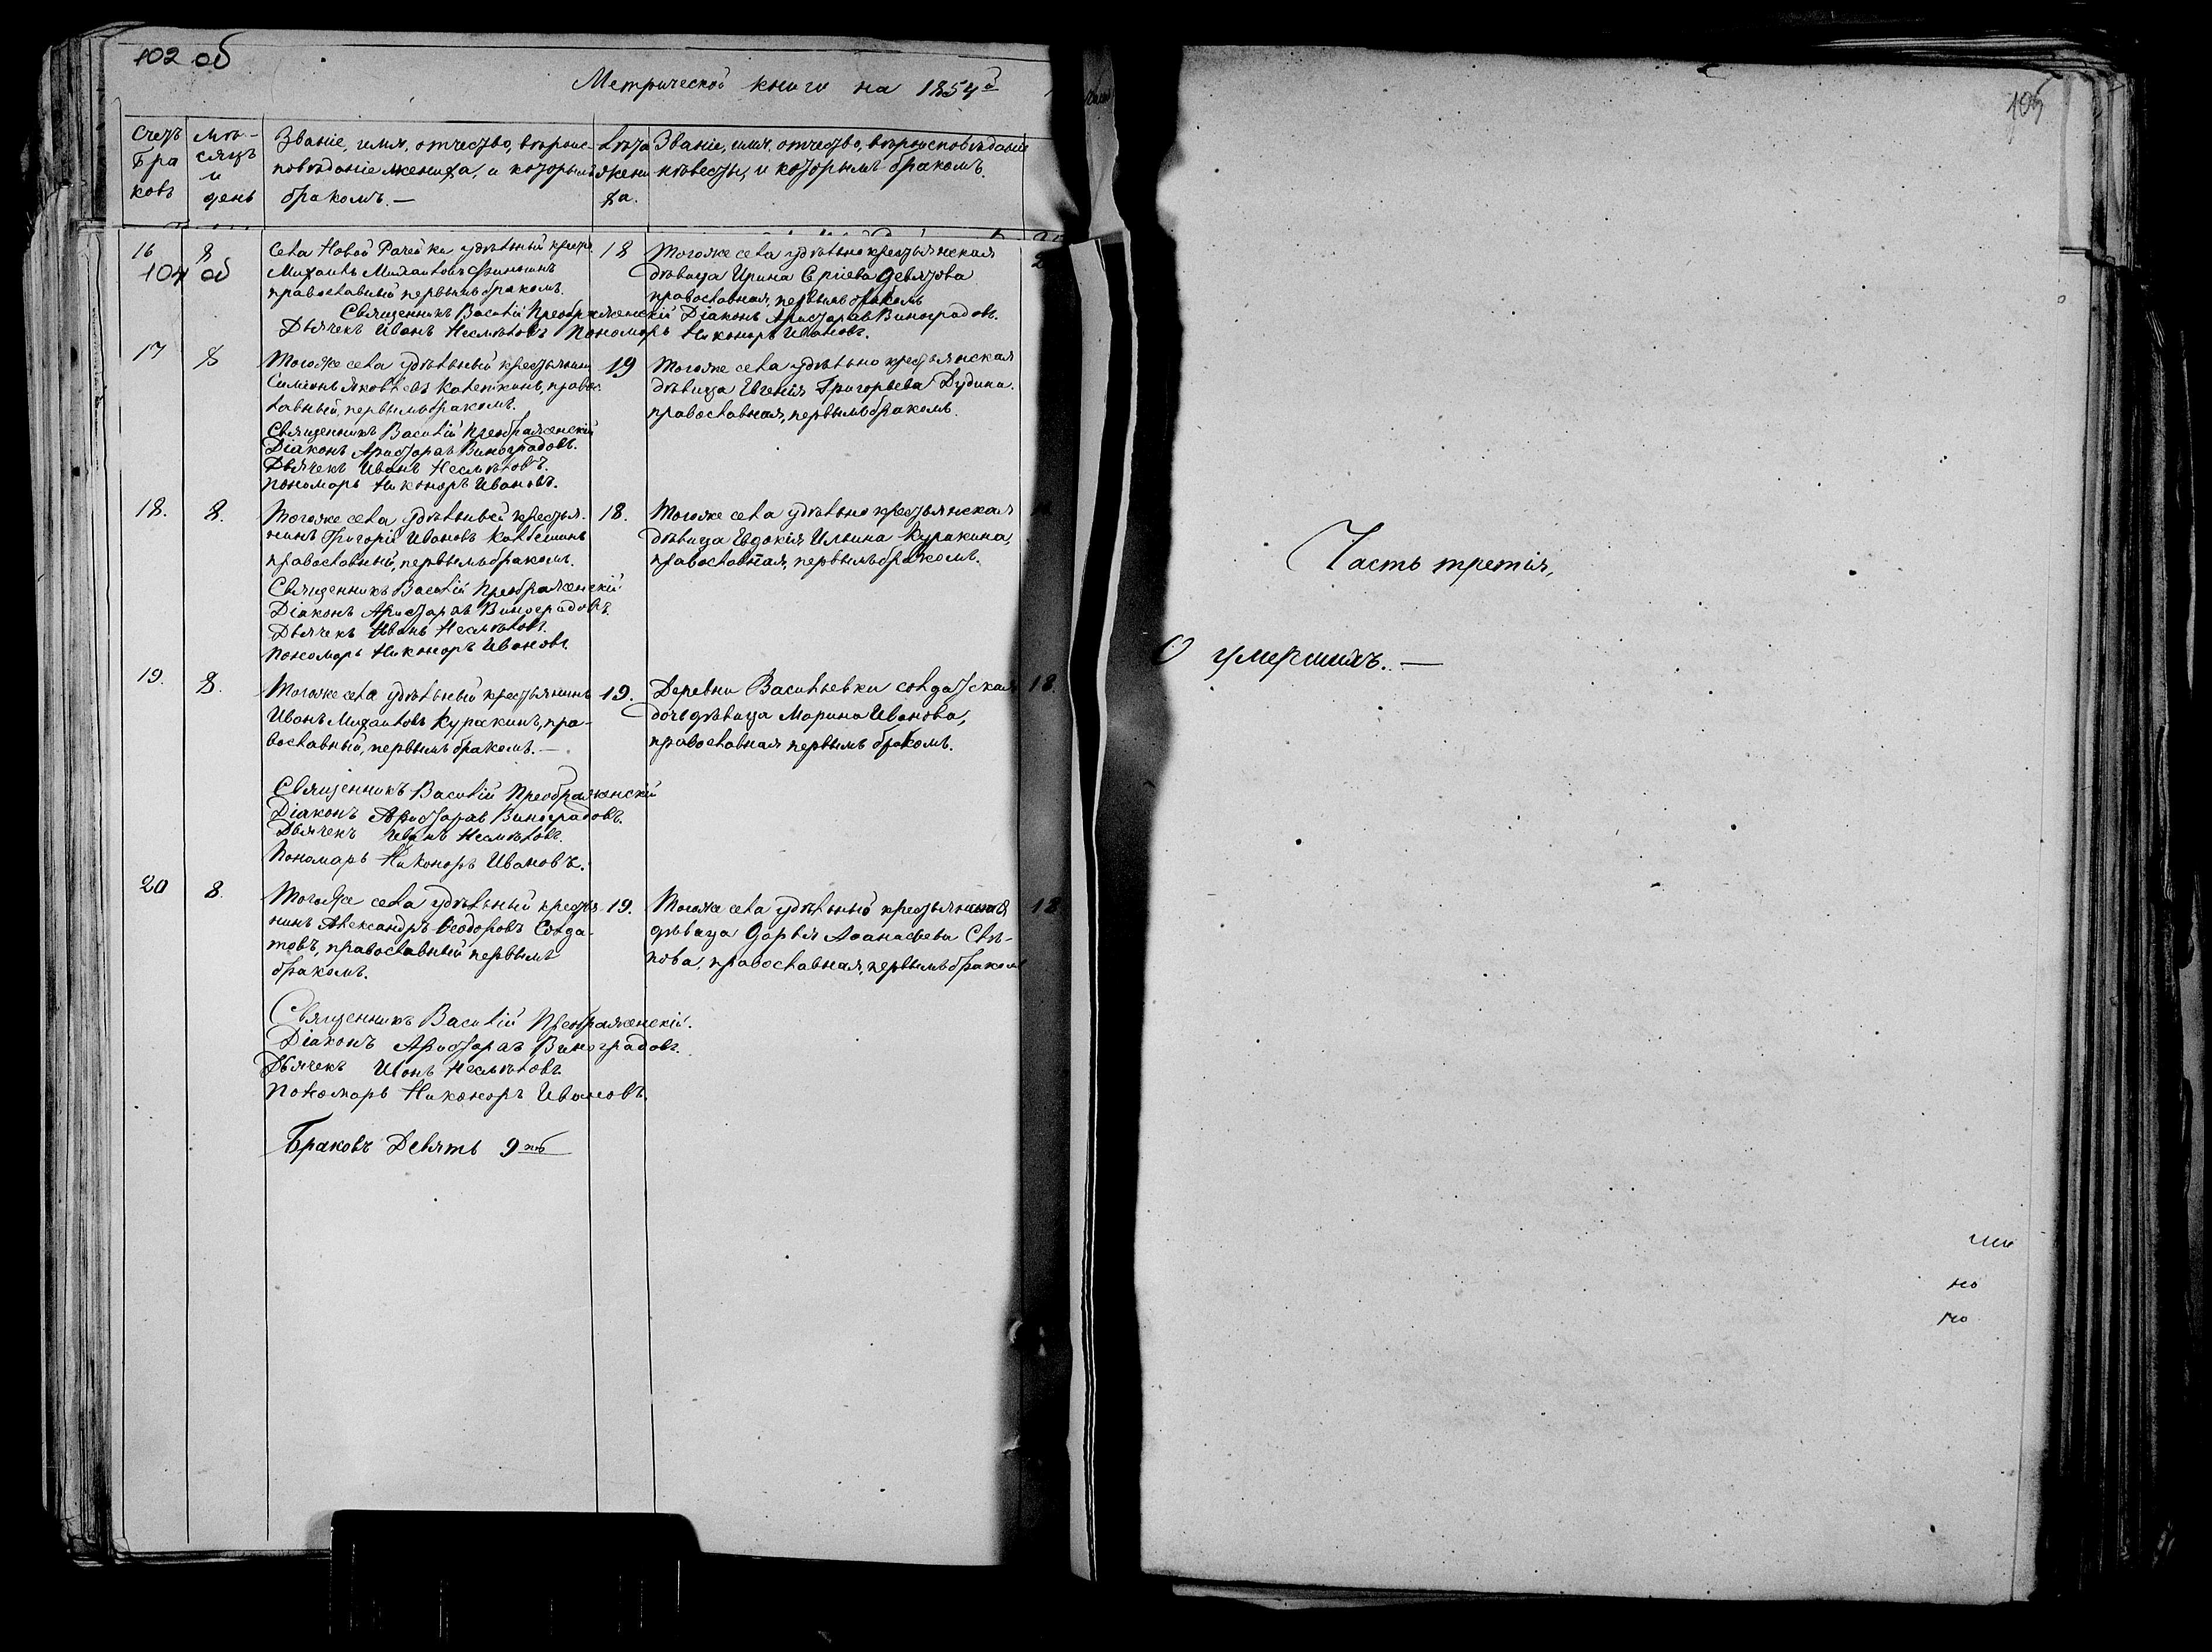 102 об
Метрической книги на 1854й
Счетъ браковъ
Мѣсяцъ и день
Званіе, имя, отчество, вѣроис-
повѣданіе жениха, и которымъ
бракомъ. —
Лѣта жениха.
Званіе, имя, отчество, вѣроисповѣданіе
невѣсты, и которымъ бракомъ.
16
104 об
8
Села Новой Рачейки удѣльный крест.
Михаилъ Михаиловъ
православный первымъ бракомъ.
18
Тогоже села удѣльно крестьянская
дѣвица Ирина Девятова
православная, первымъ бракомъ
Священникъ Василій Преображенскій Діаконъ Аристархъ Виноградовъ.
Дьячекъ Иванъ Несмѣловъ Пономарь Никоноръ Ивановъ.
17
8
Тогоже села удѣльный крестьянин
Симеонъ Яковлевъ правос-
лавный, первымъ бракомъ.
19
Тогоже села удѣльно крестьянская
дѣвица Евгенія Григорьева Дудина.
православная, первымъ бракомъ.
Священникъ Василій Преображенскій
Діаконъ Аристархъ Виноградовъ.
Дьячекъ Иванъ Несмѣловъ.
Пономарь Никоноръ Ивановъ.
18.
8.
Тогоже села удѣльный крестья-
нинъ Григорій Ивановъ
православный, первымъ бракомъ.
18.
Тогоже села удѣльно крестьянская
дѣвица Евдокія Ильина Куракина,
православная, первымъ бракомъ.
Священникъ Василій Преображенскій
Діаконъ Аристархъ Виноградовъ.
Дьячекъ Иванъ Несмѣловъ.
Пономарь Никоноръ Ивановъ
19.
8.
Тогоже села удѣльный крестьянинъ
Иванъ Михаиловъ Куракинъ, пра-
вославный, первымъ бракомъ. —
19.
Деревни Васильевки солдатская
дочь дѣвица Марина Иванова,
православная первымъ бракомъ.
18.
Священникъ Василій Преображенскій
Діаконъ Аристархъ Виноградовъ.
Дьячекъ Иванъ Несмѣловъ.
Пономарь Никоноръ Ивановъ.
20
8.
Тогоже села удѣльный крестья-
нинъ Александръ Ѳеодоровъ Солда-
товъ, православный первымъ
бракомъ.
19.
Тогоже села удѣльный крестьянская
дѣвица Дарья Аѳанасьева
православная, первымъ бракомъ
18
Священникъ Василій Преображенскій.
Діаконъ Аристархъ Виноградовъ.
Дьячекъ Иванъ Несмѣловъ
Пономарь Никоноръ Ивановъ.
Браковъ Девять 9
105
Часть третія,
О умершихъ. —
но